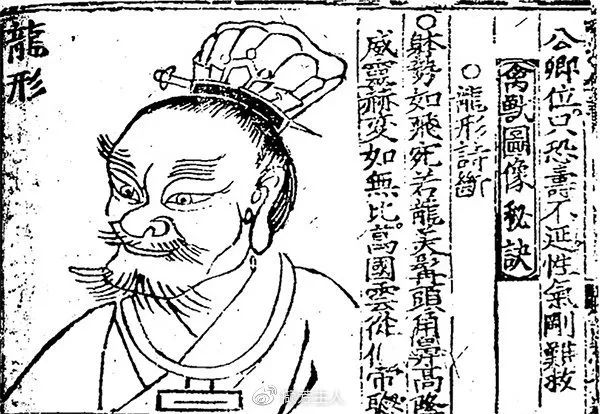 公卿位只恐壽不延性氣剛難救
禽獸圖像秘訣
○龍形詩斷
○躰勢如飛宛若龍美髯頭角鼻高隆
威靈赫変如無比萬國雲從 帝
龍形
主人